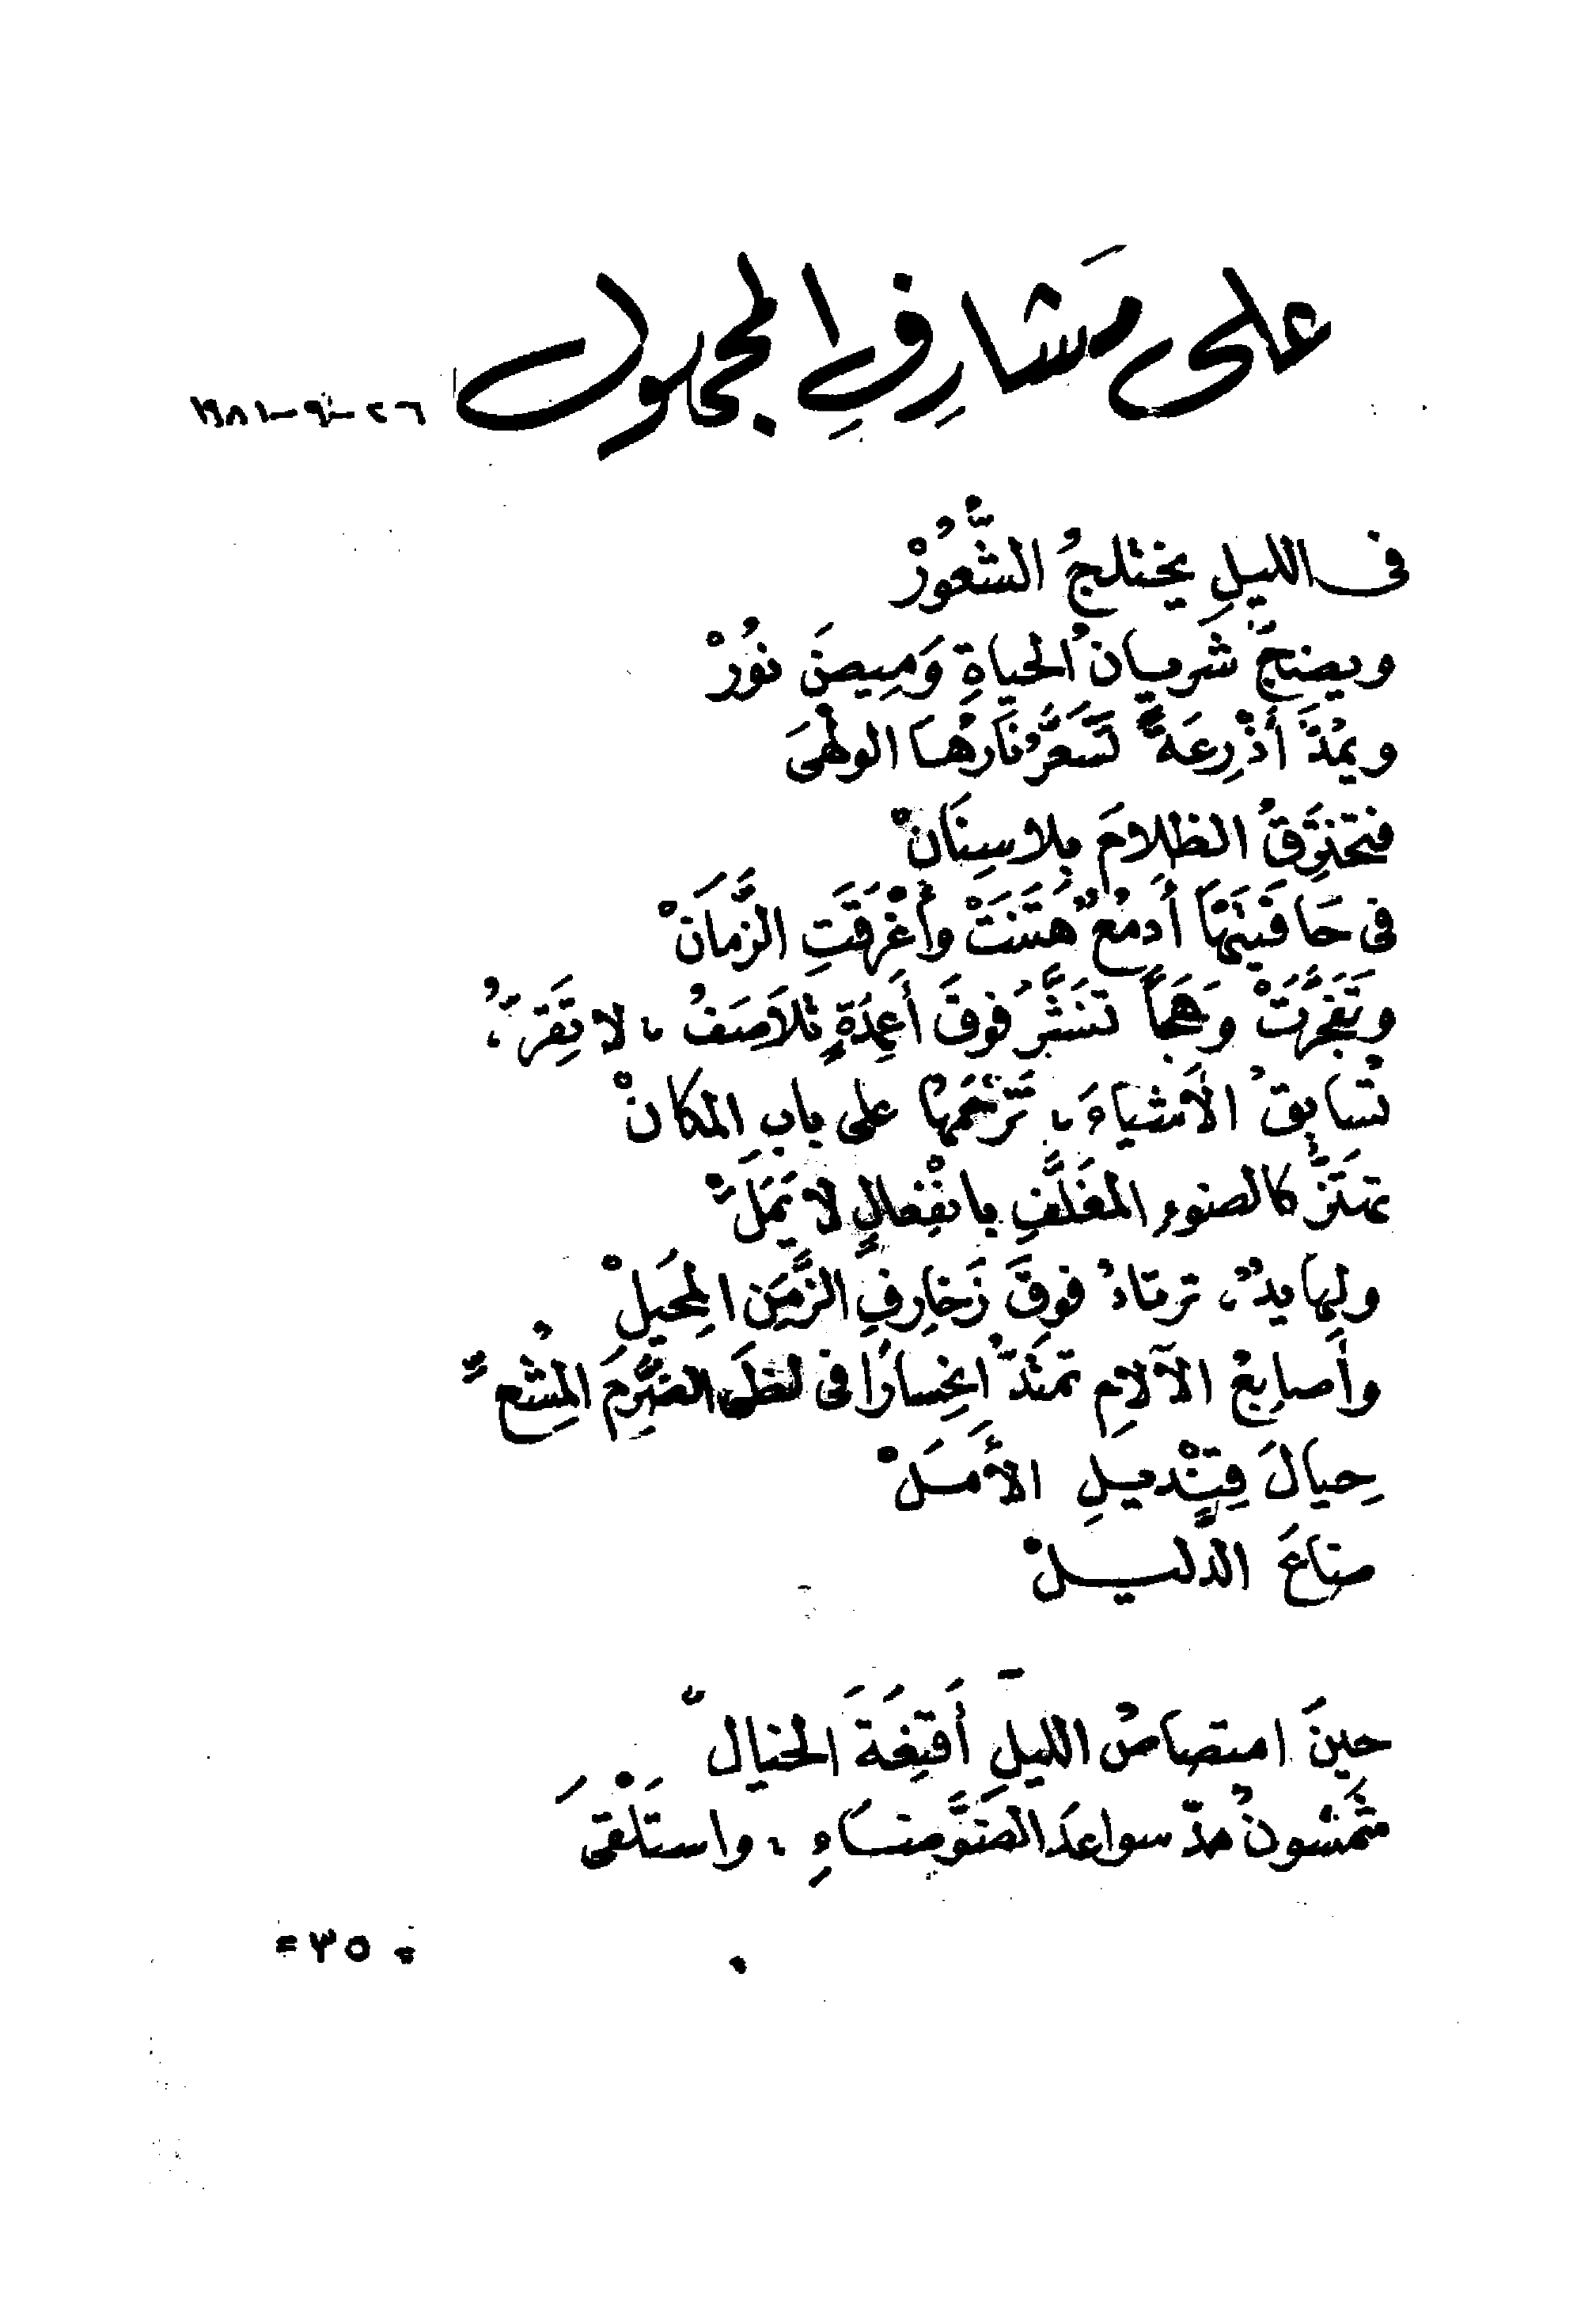 على مَشارِفِ المجهول
٢٦-٩-١٩٨١
فى الليلِ يختلجُ الشُّعُورْ
ويضجّ شريانُ الحياةِ وَمِيضَ نُورْ
ويمُدّ أذْرِعَةً تَسَعَّرُ نَارُهَا الولْهىَ
فتخترِقُ الظلامَ بِلا سِنَانْ
فى حَافَتيْهَا أدمُعٌ هَتَنَتْ وأَغْرَقَتِ الزَّمَانْ
وتَفَجَّرَتْ وَهَجاً تَنَثَّرَ فوقَ أَعمِدَةٍ تلاَصَفُ، لا تَقِرُّ،
تُسَابِقُ الأشياءَ، تَزْحَمُهَا على بابِ المكانْ
تهتَزّ كالضوءِ المغَلَّفِ بانْفِعالٍ لا يَمَلّْ
ولها يدٌ، ترتادُ فوقَ زَخارِفِ الزَّمَنِ المُحِيلْ
وأصابعُ الآلامِ تمتَدُّ انحِسارًا فى لظَى الضَّرَمِ المُشِعّْ
حِيالَ قِنْديلِ الأمَلْ
ضاعَ الدّليلْ
حينَ امتصاصُ الليلِ أَقنِعَةَ الخيالْ
شَمْشونُ مدّ سواعدَ الضَّوضَاءِ، واستَلْقىَ
= ٣٥ =